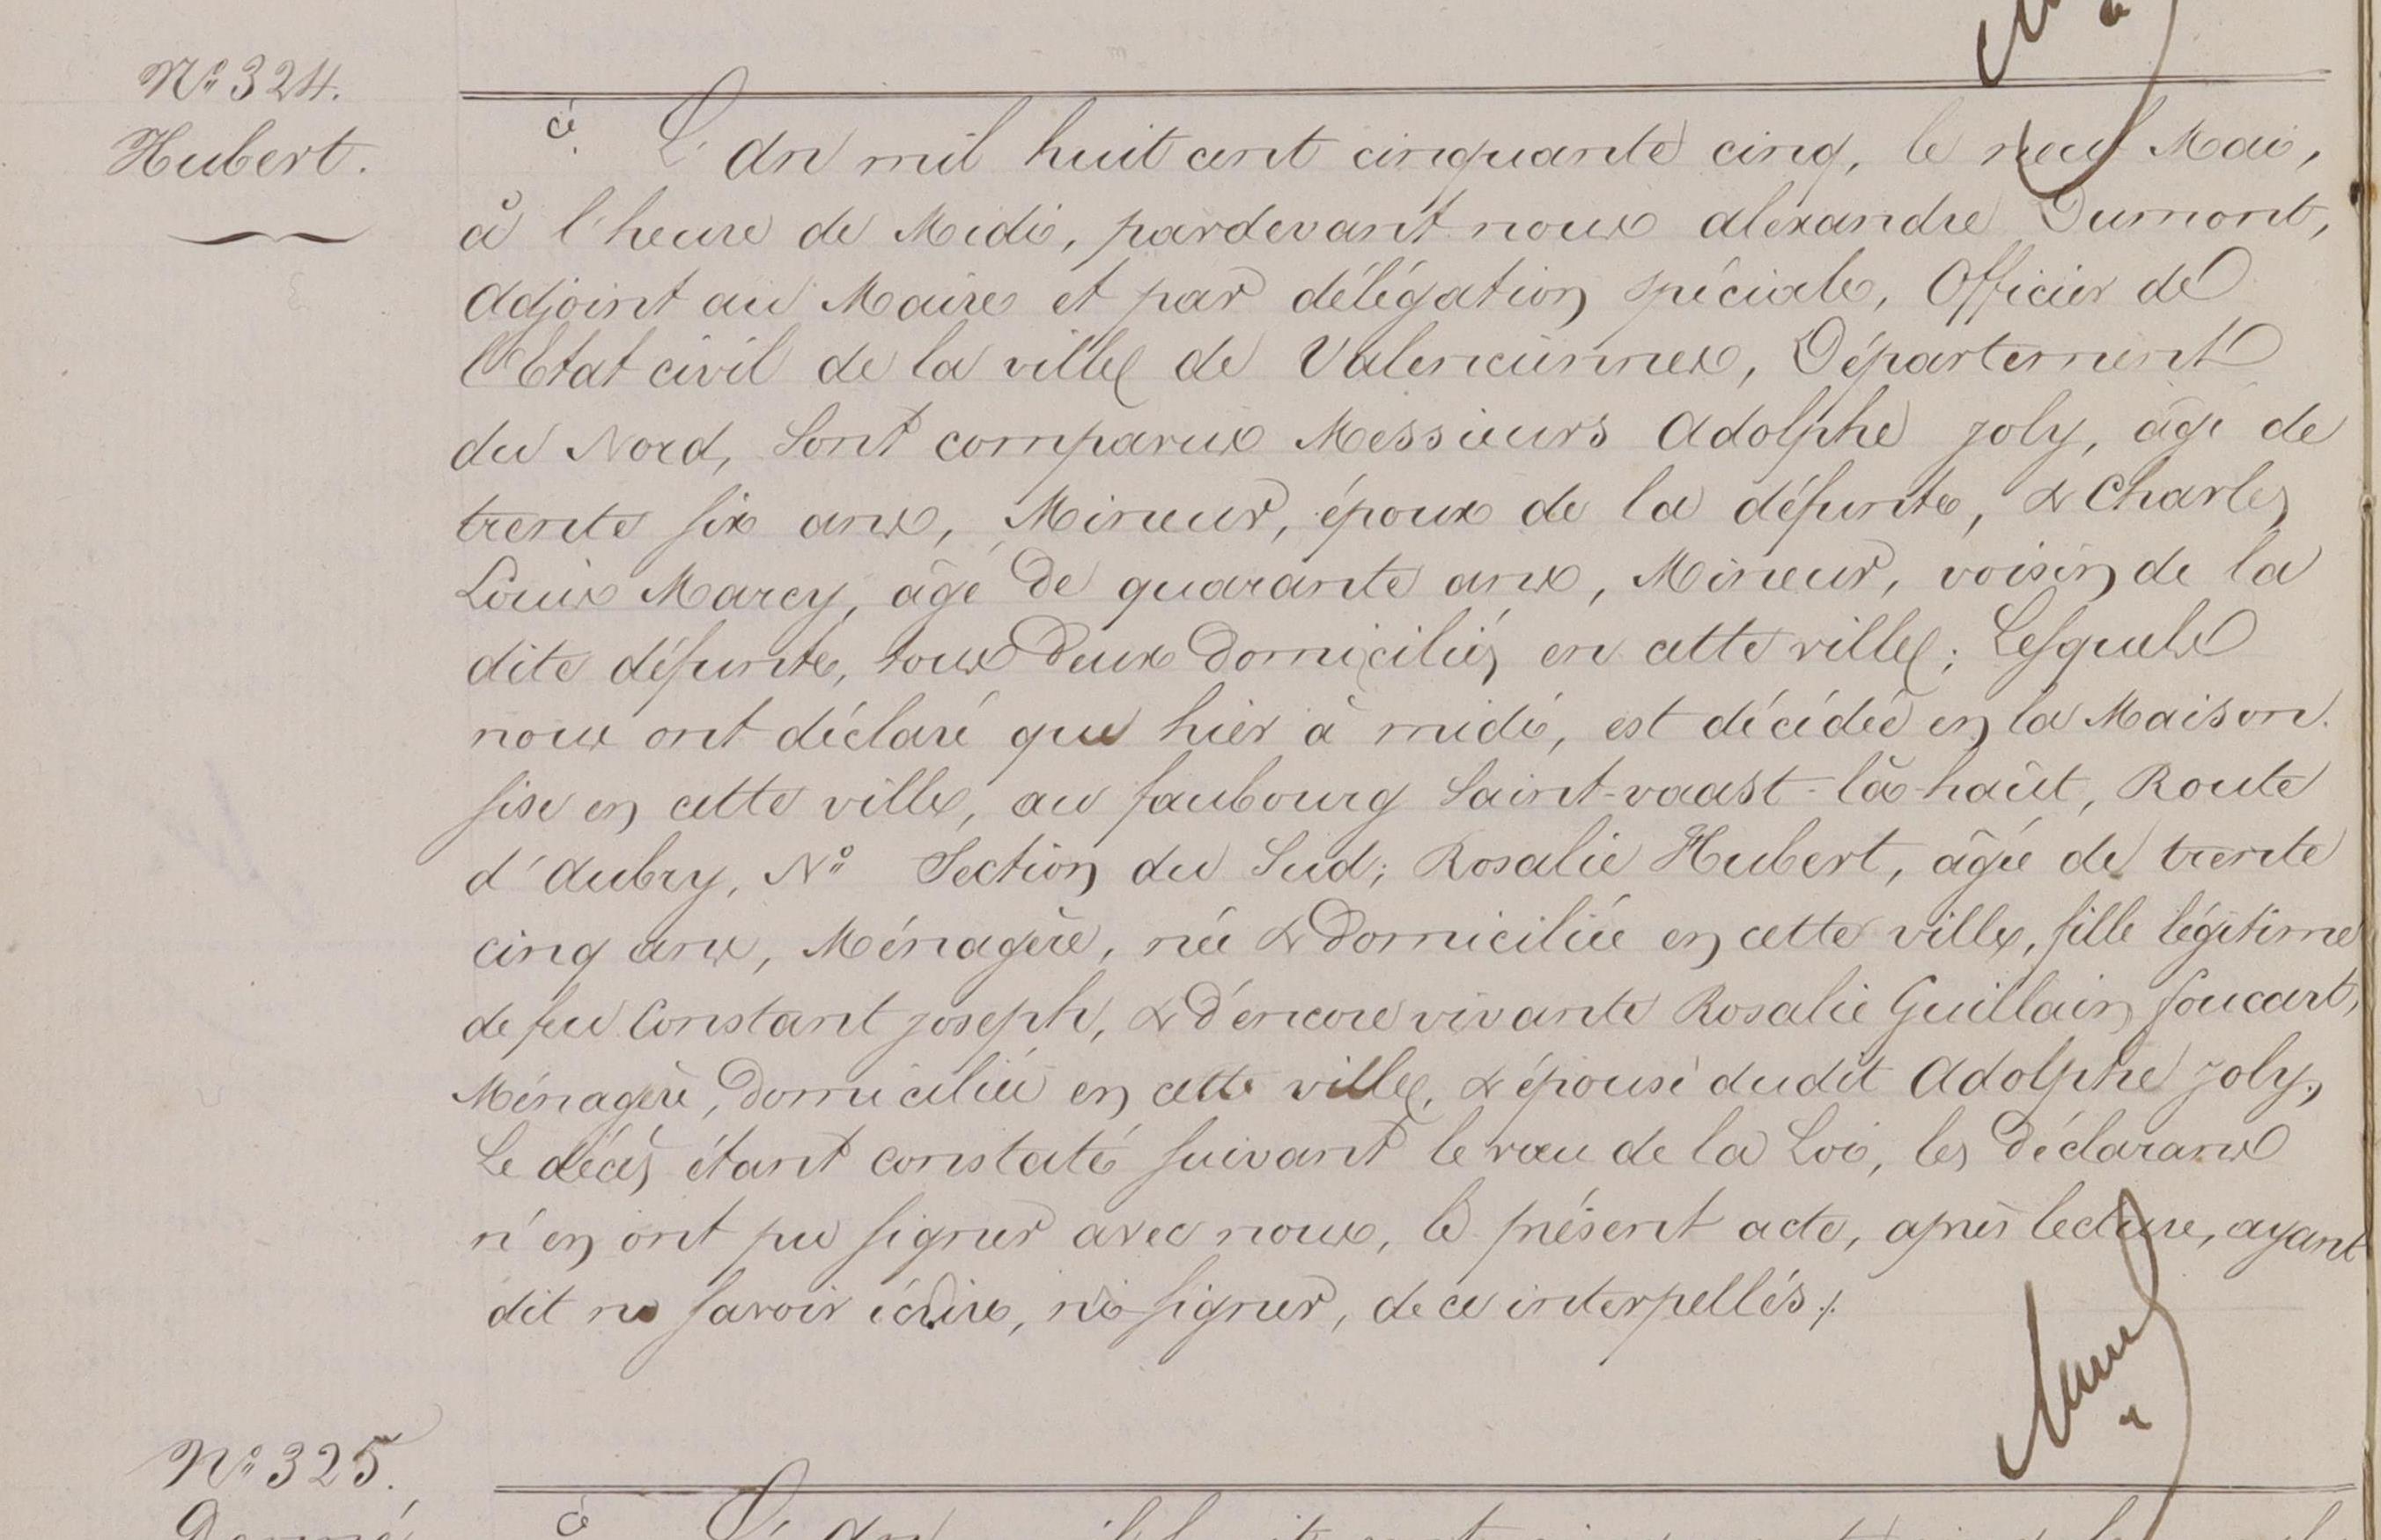 N° 324.
Hubert.
cé.
L'An mil huit cent cinquante cinq, le neuf Mai,
à l'heure de Midi, pardevant nous Alexandre Dumont,
Adjoint au Maire et par délégation spéciale, Officier de
l'Etat civil de la ville de Valenciennes, Département
du Nord, sont comparus Messieurs Adolphe Joly, âgé de
trente six ans, Mineur, époux de la défunte, & Charles
Louis Marcy, âgé de quarante ans, Mineur, voisin de la
dite défunte, tous deux domiciliés en cette ville; Lesquels
nous ont déclaré que hier à midi, est décédée en la Maison
sise en cette ville, au faubourg Saint-vaast-là-haut, Route
d'Aubry, N° Section du Sud; Rosalie Hubert, âgée de trente
cinq ans, Ménagère, née & domiciliée en cette ville, fille légitime
de feu Constant Joseph, & d'encore vivante Rosalie Guillain Foucart,
Ménagère, domiciliée en cette ville, & épouse dudit Adolphe Joly,
Le décès étant constaté suivant le vœu de la Loi, les déclarans
n'en ont pu signer avec nous, le présent acte, après lecture, ayant
dit ne savoir écrire, ni signer, de ce interpellés ./.
N° 325.